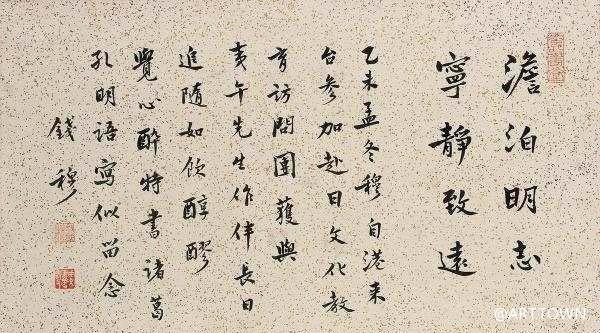 澹泊明志
寧靜致遠
乙未孟冬穆自港来
台参加赴日文化教
育訪問團獲與
夷午先生作伴長日
追隨如飲醇醪
覺心醉特書諸葛
孔明語寫似留念
錢穆
@ARTTOWN